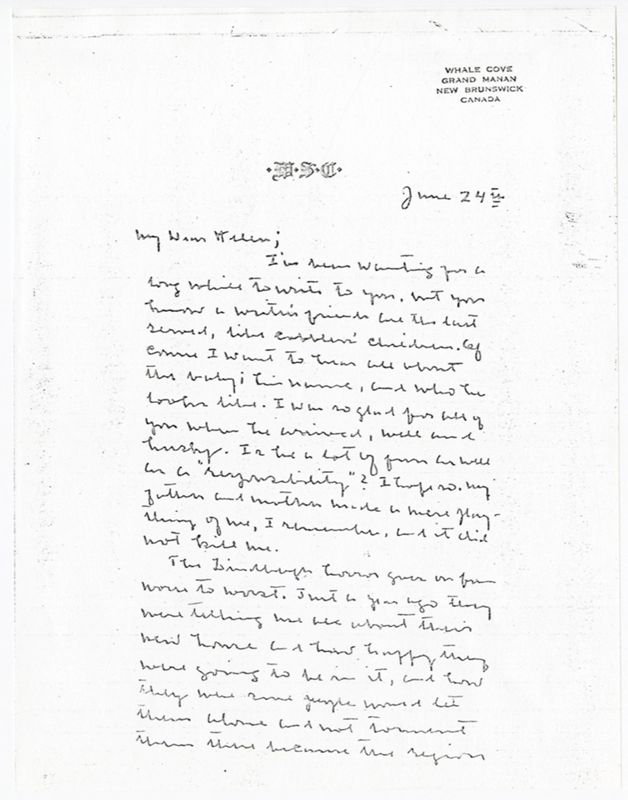 WHALE COVE
GRAND MANAN
NEW BRUNSWICK
CANADA
·W·S·C·
June 24th
My Dear Helen;
I've been wanting for a
long while to write to you, but you
know a writer's friends are the last
served, like cobblers' children. Of
course I want to hear all about
the baby; his name, and who he
looks like. I was so glad for all of
you when he arrived, well and
husky. Is he a lot of fun as well
as a "responsibility"? I hope so. My
father and mother made a mere play-
thing of me, I remember, and it did
not kill me.
The Lindbergh horror goes on from
worse to worst. Just a year ago they
were telling me all about their
new house and how happy they
were going to be in it, and how
they were sure people would let
them alone and not torment
them there because the region